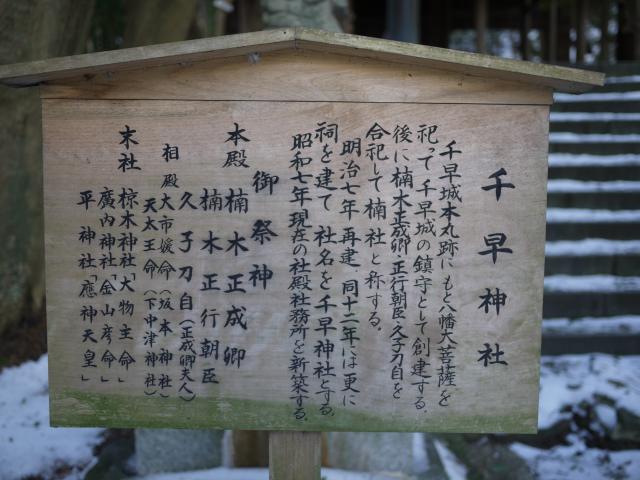 千早神社
千早城本丸跡にもと八幡大菩薩を
祀って千早城の鎮守として創建する.
後に楠木正成卿・正行朝臣・久子刀自を
合祀して楠社と称する.
明治七年再建、同十二年には更に
祠を建て社名を千早神社とする.
昭和七年現在の社殿社務所を新築する.
御祭神
本殿 楠木正成卿
楠木正行朝臣
久子刀自(正成卿夫人)
相殿 大市媛命(坂本神社)
天太王命(下中津神社)
末社 椋木神社「大物主命」
廣内神社「金山彦命」
平神社「應神天皇」